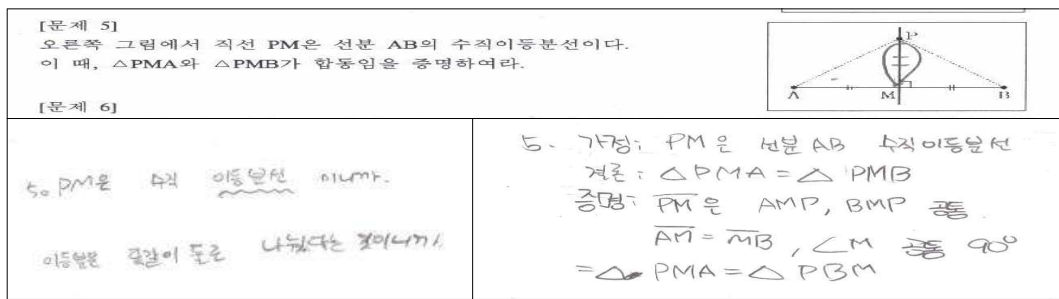 [문제 5]
오른쪽 그림에서 직선 PM은 선분 AB의 수직이등분선이다.
이 때, △PMA와 △PMB가 합동임을 증명하여라.
P
A M B
[문제 6]
5. PM은 수직 이등분선 이니까.
이등분은 똑같이 둘로 나눴다는 것이니까
5. 가정: PM은 선분 AB 수직이등분선
결론: △PMA = △PMB
증명: PM은 AMP, BMP 공통
AM = MB, ∠M 공통 90°
= △PMA = △PBM